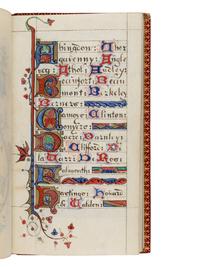 Abingdon: Athor
Aquenny: Angle
sey: Athol: Audley:
Beaufort: Beau
mont: Berkeley
Berners:
Camoys: Clinton:
Conyers:
Dacre: Darnley:
D Clifford: D
la Warr: D Ros:
Falmouth:
Hastings: Howard
d Walden: